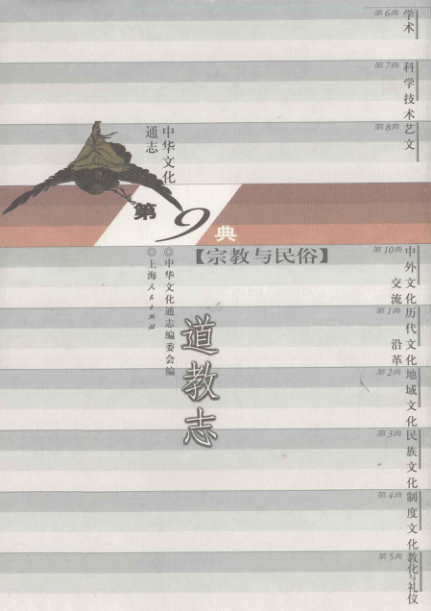 第6典 学术
第7典 科学技术
第8典 艺文
中华文化
通志
第9典
【宗教与民俗】
◎中华文化通志编委会编
◎上海人民出版社
道教志
第10典 中外文化
交流
第1典 历代文化
沿革
第2典 地域文化
第3典 民族文化
第4典 制度文化
第5典 教化与礼仪